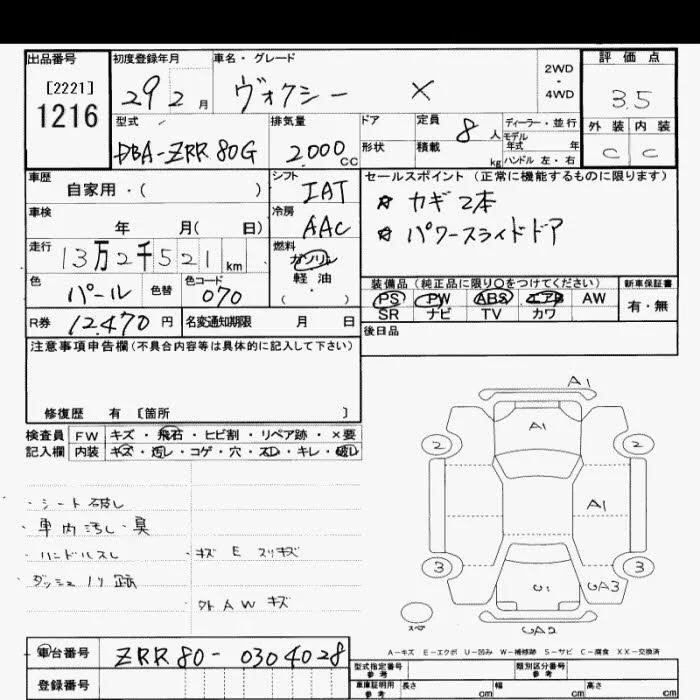 出品番号 初度登録年月 車名・グレード 2WD・4WD 評価点
[2221]
1216 29 2月 ヴォクシー X 3.5
型式 排気量 ドア 定員 8人 ディーラー・並行 外装 内装
DBA-ZRR80G 2000cc 形状 積載 kg モデル年式 年 ハンドル 左・右 C C
車歴 自家用・( ) シフト IAT セールスポイント(正常に機能するものに限ります)
車検 年 月( 日) 冷房 AAC ☆ カギ2本
☆ パワースライドドア
走行 13万2千521km 燃料 ガソリン 軽油 ( )
色 パール 色替 色コード 070 装備品(純正品に限り○をつけてください) 新車保証書
PS PW ABS エアB AW 有・無
SR ナビ TV カワ
R券 12,470円 名変通知期限 月 日 後日品
注意事項申告欄(不具合内容等は具体的に記入して下さい)
修復歴 有 〔箇所 〕
検査員 FW キズ・飛石・ヒビ割・リペア跡・×要
記入欄 内装 キズ・汚レ・コゲ・穴・スレ・キレ・破レ
・シート破レ
・車内汚し・臭
・ハンドルスレ ・キズ E スリキズ
ダッシュノリ跡
外AWキズ
A1
A1
2 2
A1
3 3
U1 UA3
スペア UA2
A-キズ E-エクボ U-凹み W-補修跡 S-サビ C-腐食 XX-交換済
車台番号 ZRR80-0304028 型式指定番号 参考 類別区分番号 参考
登録番号 車庫証明用 参考 長さ cm 幅 cm 高さ cm